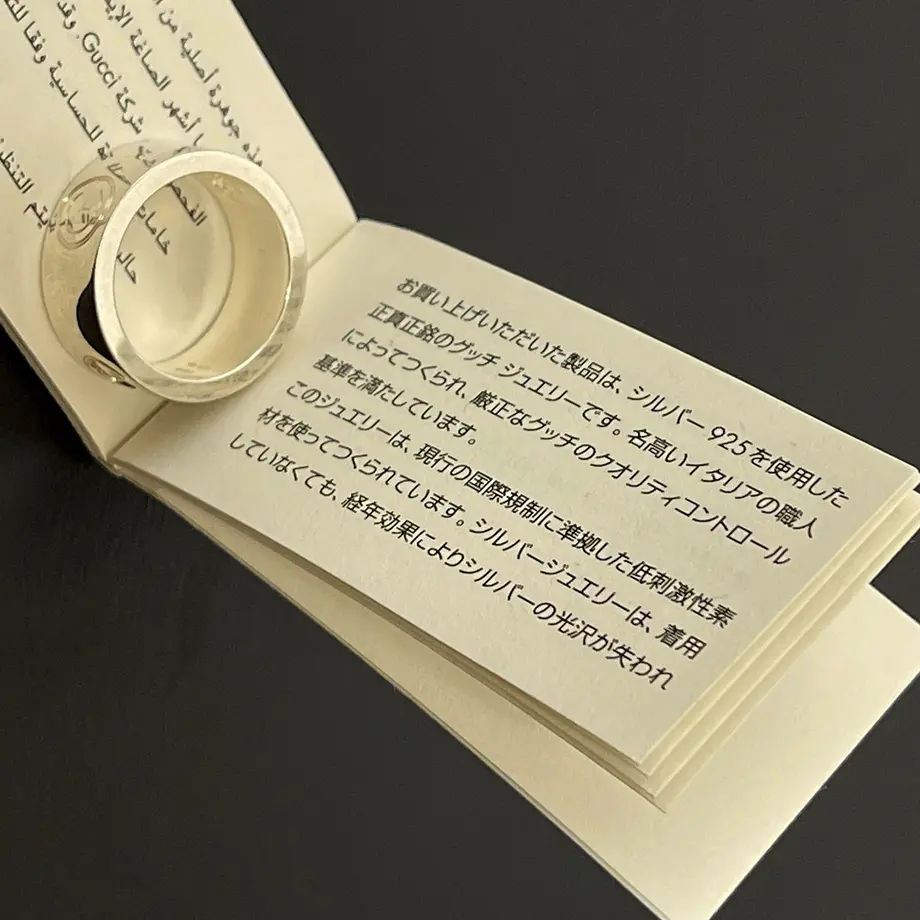 هذه جوهرة أصلية من
أشهر الصاغة
شركة Gucci. وقد
خامات للحساسية وفقا
يتم
お買い上げいただいた製品は、シルバー 925を使用した
正真正銘のグッチ ジュエリーです。名高いイタリアの職人
によってつくられ、厳正なグッチのクオリティコントロール
基準を満たしています。
このジュエリーは、現行の国際規制に準拠した低刺激性素
材を使ってつくられています。シルバージュエリーは、着用
していなくても、経年効果によりシルバーの光沢が失われ